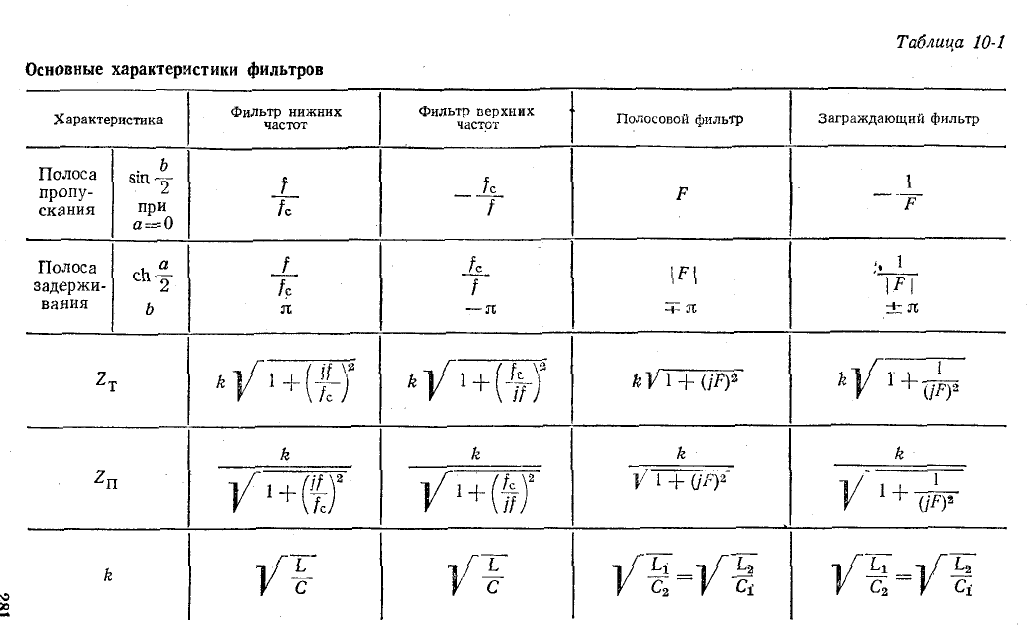 Таблица 10-1
Основные характеристики фильтров
Характеристика | Фильтр нижних частот | Фильтр верхних частот | Полосовой фильтр | Заграждающий фильтр
Полоса пропу-скания | sin b/2 при a=0 | f/f_c | −f_c/f | F | −1/F
Полоса задержи-вания | ch a/2 | f/f_c | f_c/f | |F| | 1/|F|
b | π | −π | ∓π | ±π
Z_Т | k√(1+(jf/f_c)²) | k√(1+(f_c/jf)²) | k√(1+(jF)²) | k√(1+1/(jF)²)
Z_П | k/√(1+(jf/f_c)²) | k/√(1+(f_c/jf)²) | k/√(1+(jF)²) | k/√(1+1/(jF)²)
k | √(L/C) | √(L/C) | √(L₁/C₂)=√(L₂/C₁) | √(L₁/C₂)=√(L₂/C₁)
281